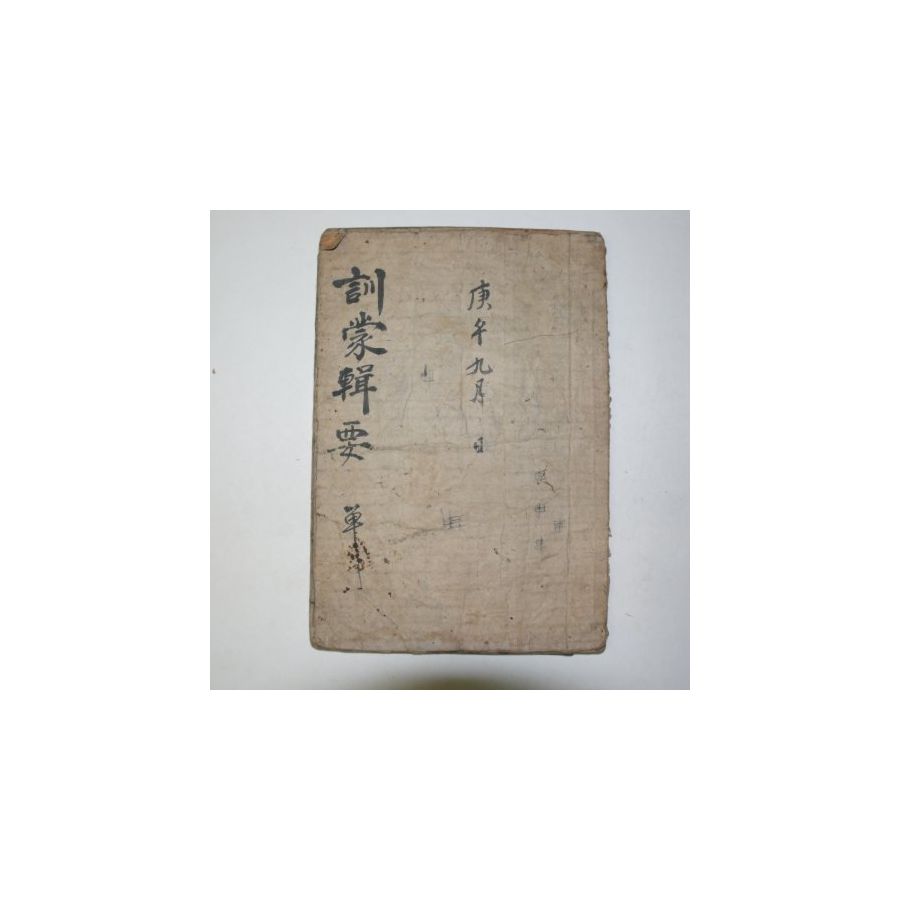 庚午九月 日
訓蒙輯要 單